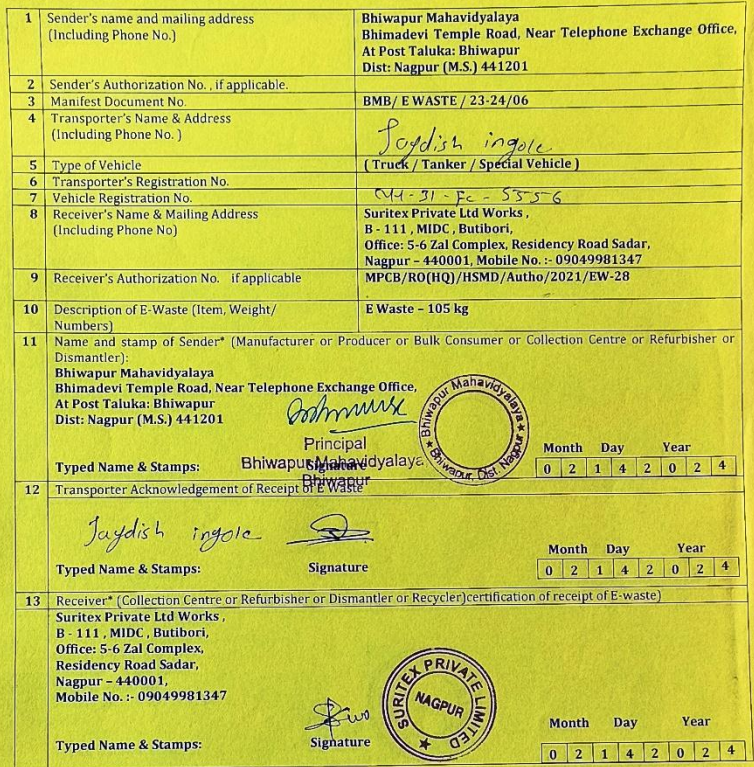 1 Sender's name and mailing address (Including Phone No.)
Bhiwapur Mahavidyalaya
Bhimadevi Temple Road, Near Telephone Exchange Office,
At Post Taluka: Bhiwapur
Dist: Nagpur (M.S.) 441201
2 Sender's Authorization No. , if applicable.
3 Manifest Document No. BMB/ E WASTE / 23-24/06
4 Transporter's Name & Address
(Including Phone No. )
Jaydish ingole
5 Type of Vehicle ( Truck / Tanker / Special Vehicle )
6 Transporter's Registration No.
7 Vehicle Registration No. MH-31-Fc-5556
8 Receiver's Name & Mailing Address
(Including Phone No)
Suritex Private Ltd Works ,
B - 111 , MIDC , Butibori,
Office: 5-6 Zal Complex, Residency Road Sadar,
Nagpur – 440001, Mobile No. :- 09049981347
9 Receiver's Authorization No. if applicable MPCB/RO(HQ)/HSMD/Autho/2021/EW-28
10 Description of E-Waste (Item, Weight/
Numbers)
E Waste – 105 kg
11 Name and stamp of Sender* (Manufacturer or Producer or Bulk Consumer or Collection Centre or Refurbisher or
Dismantler):
Bhiwapur Mahavidyalaya
Bhimadevi Temple Road, Near Telephone Exchange Office,
At Post Taluka: Bhiwapur
Dist: Nagpur (M.S.) 441201
Bhiwapur Mahavidyalaya
★ Bhiwapur, Dist. Nagpur ★
Principal
Bhiwapur Mahavidyalaya
Bhiwapur
Month Day Year
Typed Name & Stamps: Signature 0 2 1 4 2 0 2 4
12 Transporter Acknowledgement of Receipt of E Waste
Jaydish ingole
Month Day Year
Typed Name & Stamps: Signature 0 2 1 4 2 0 2 4
13 Receiver* (Collection Centre or Refurbisher or Dismantler or Recycler)certification of receipt of E-waste)
Suritex Private Ltd Works ,
B - 111 , MIDC , Butibori,
Office: 5-6 Zal Complex,
Residency Road Sadar,
Nagpur – 440001,
Mobile No. :- 09049981347
SURITEX PRIVATE LIMITED ★
NAGPUR
Month Day Year
Typed Name & Stamps: Signature 0 2 1 4 2 0 2 4